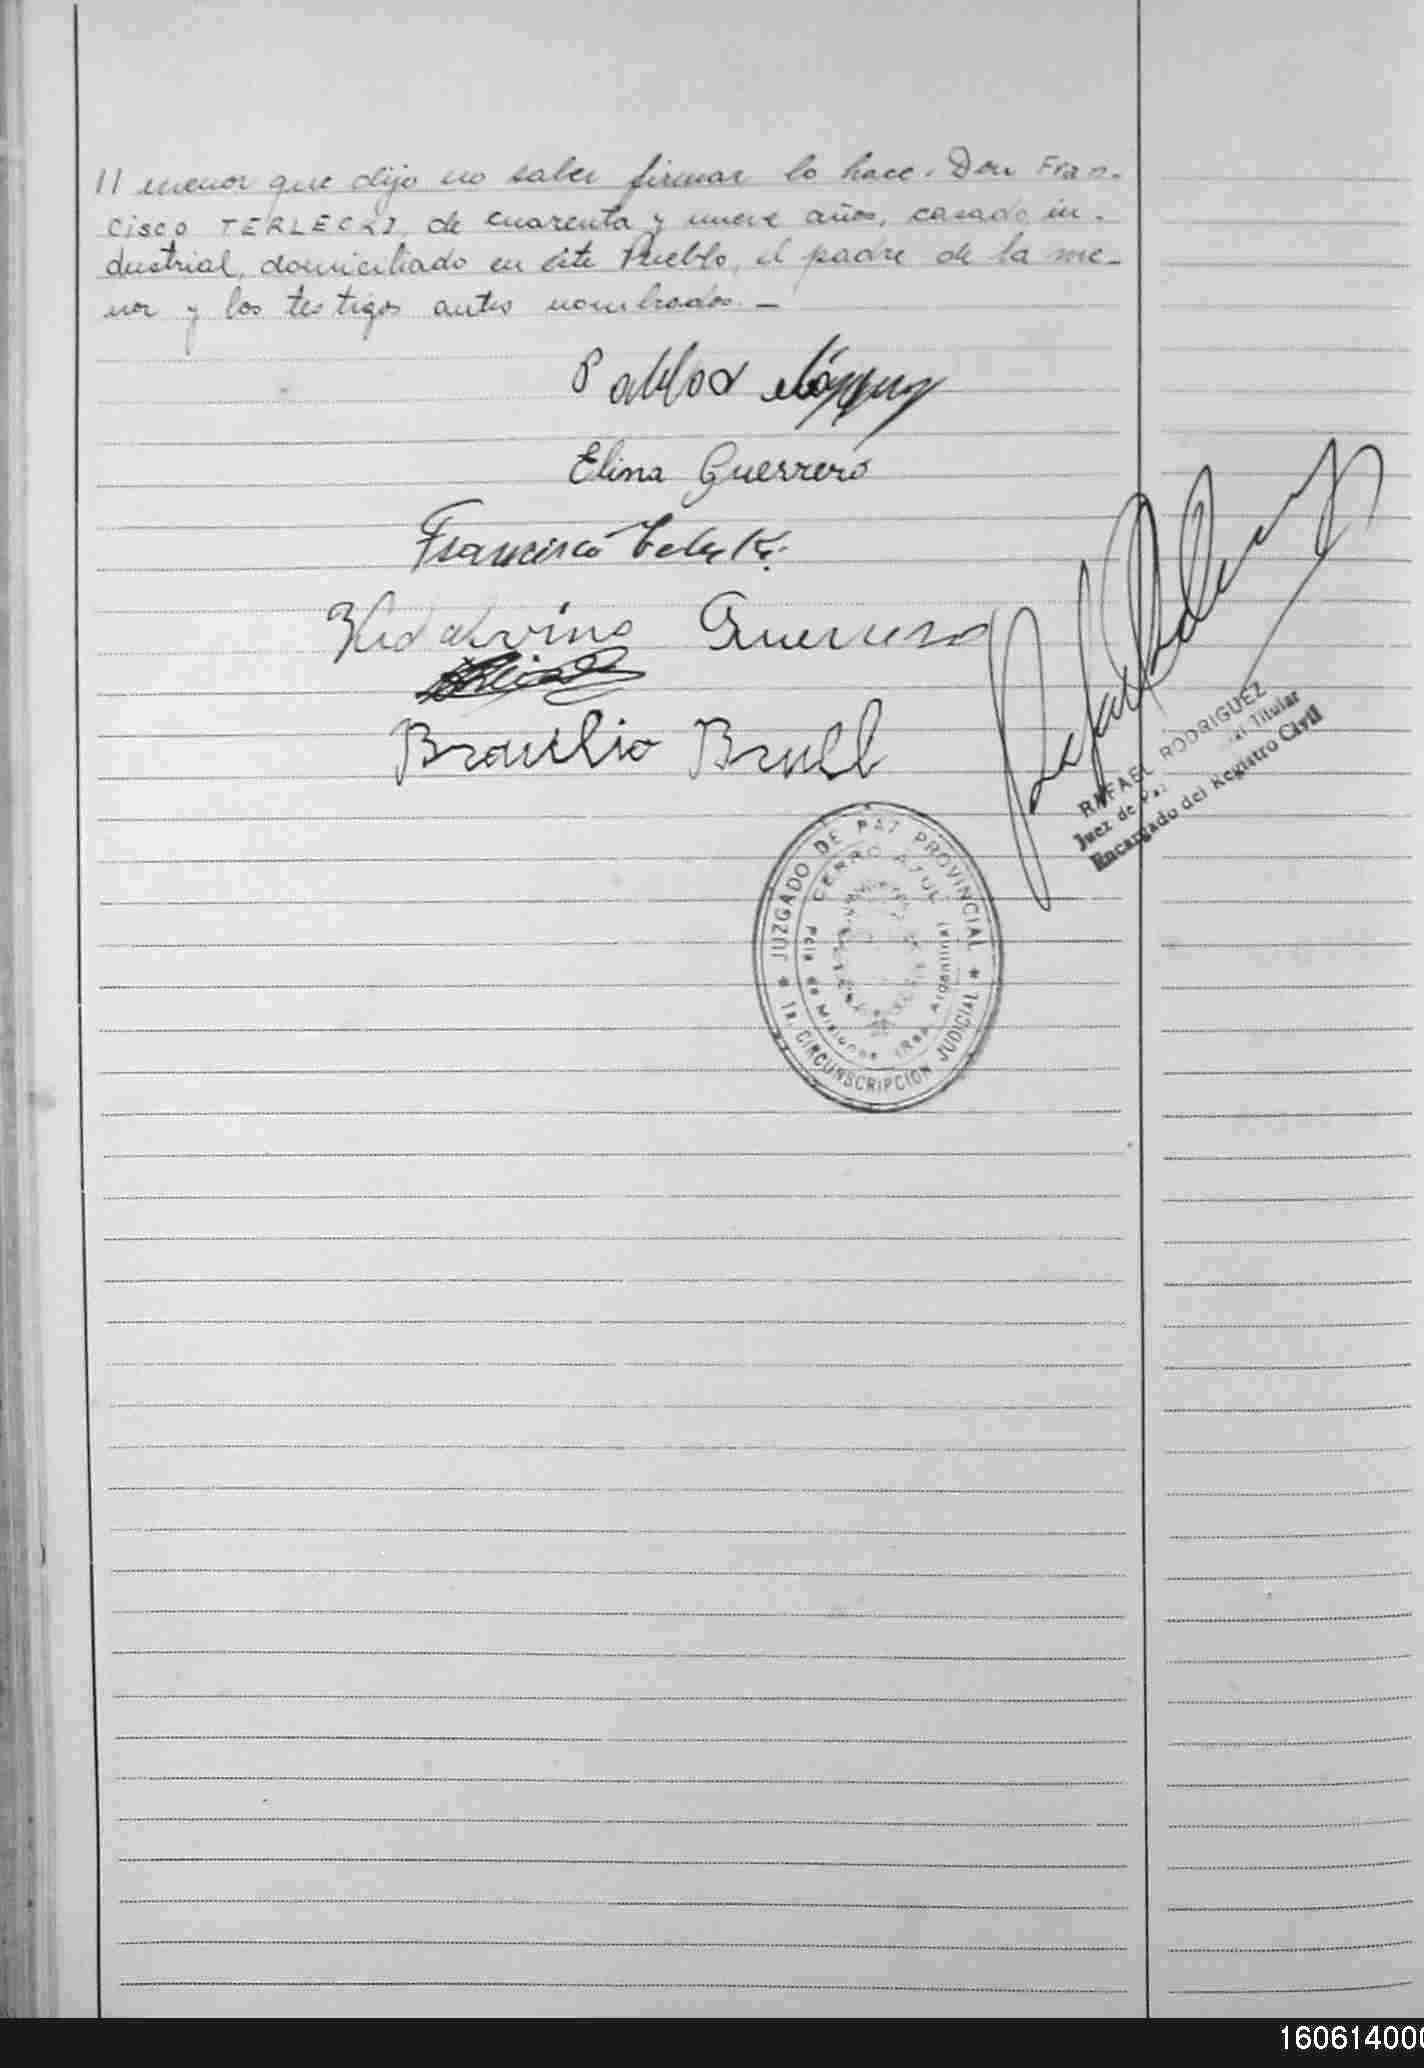 // menor que dijo no saber firmar lo hace. Don Fran-
cisco TERLECKI, de cuarenta y nueve años, casado in-
dustrial, domiciliado en éste Pueblo, el padre de la me-
nor y los testigos antes nombrados. —
Elina Guerrero
Francisco
Guerrero
Braulio Brull
RAFAEL RODRIGUEZ
Juez de Paz Titular
Encargado del Registro Civil
JUZGADO DE PAZ PROVINCIAL
CERRO AZUL
Pcia de Misiones (Rep. Argentina)
* 1a. CIRCUNSCRIPCION JUDICIAL *
160614000